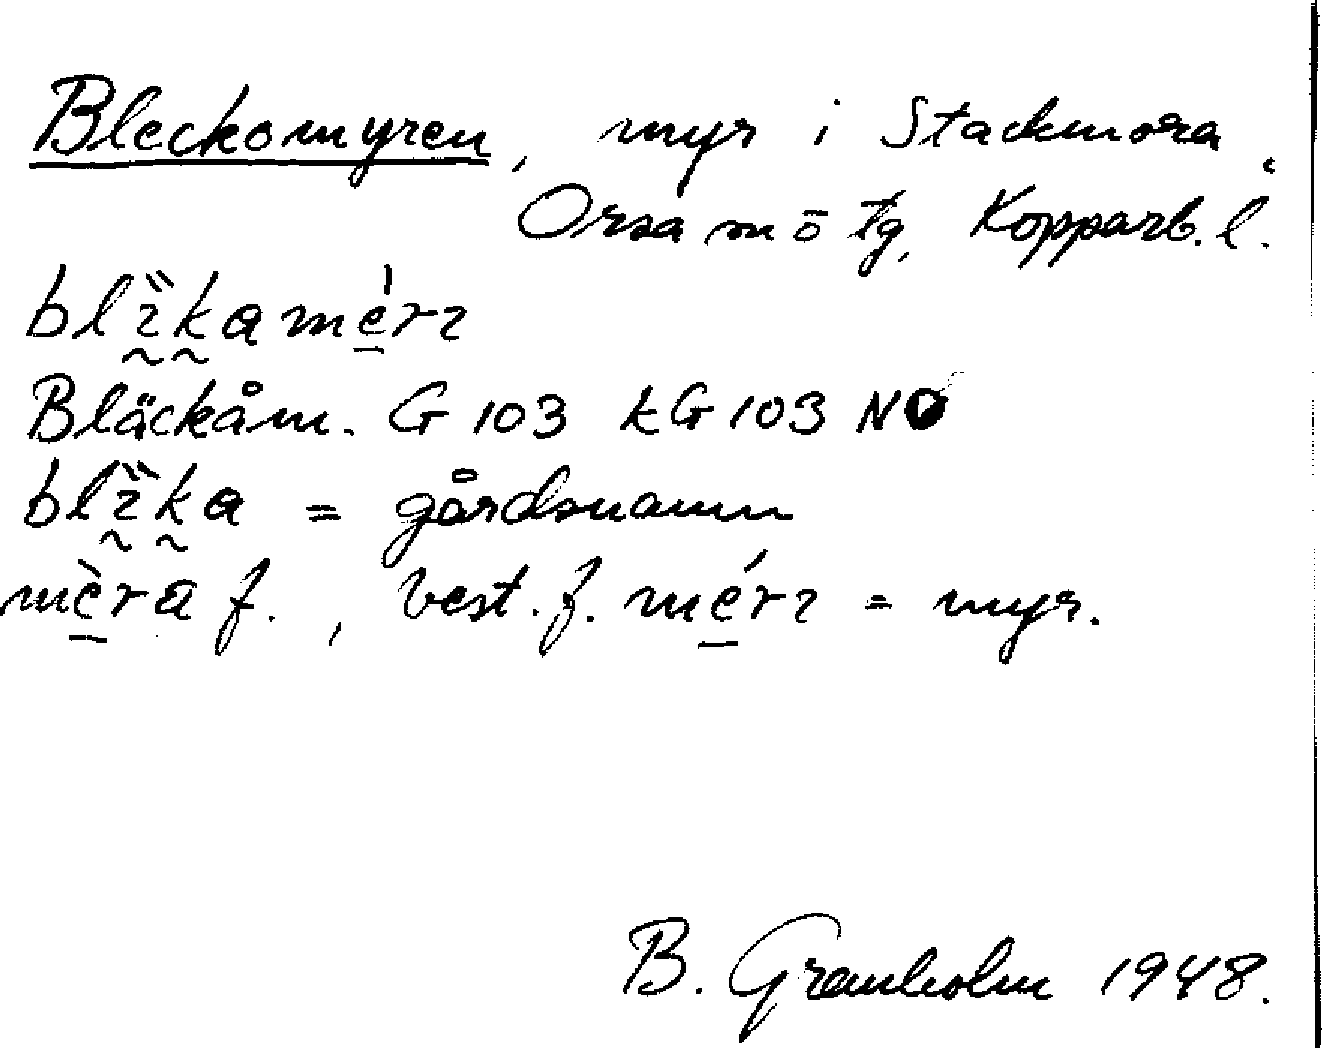 Bleckomyren, myr i Stackmora,
Orsa m ō tg, Kopparb. l.
blı̏kamérı
Bläckåm. G 103 kG 103 NO
blı̏ka = gårdsnamn
mèra f., best. f. mérı = myr.
B. Granholm 1948.